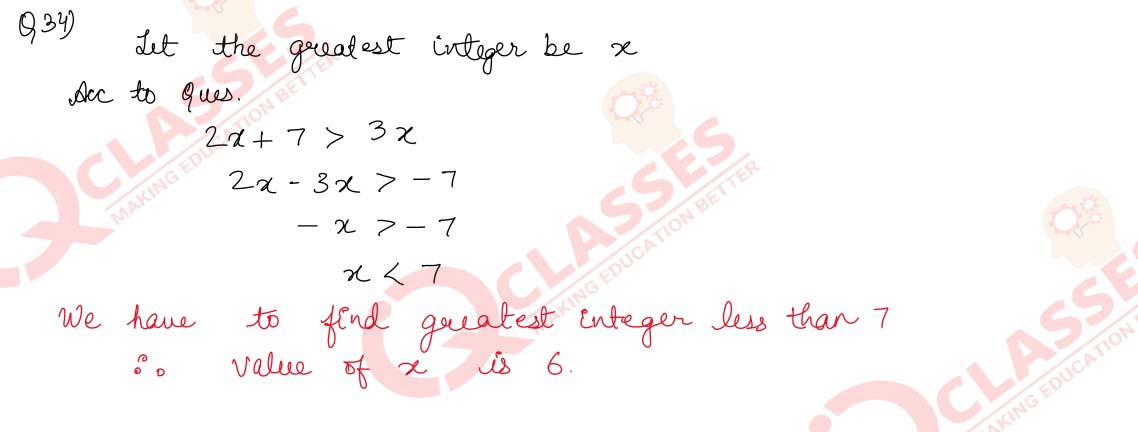 Q34)
Let the greatest integer be x
Acc to Ques.
2x + 7 > 3x
2x - 3x > - 7
- x > - 7
x < 7
We have to find greatest integer less than 7
∴ value of x is 6.
QCLASSES
MAKING EDUCATION BETTER
QCLASSES
MAKING EDUCATION BETTER
QCLASSES
MAKING EDUCATION